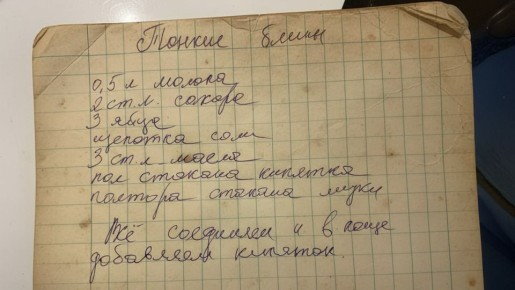 Тонкие блины
0,5 л молока
2 ст.л. сахара
3 яйца
щепотка соли
3 ст.л масла
пол стакана кипятка
полтора стакана муки
Всё соединяем и в конце
добавляем кипяток.